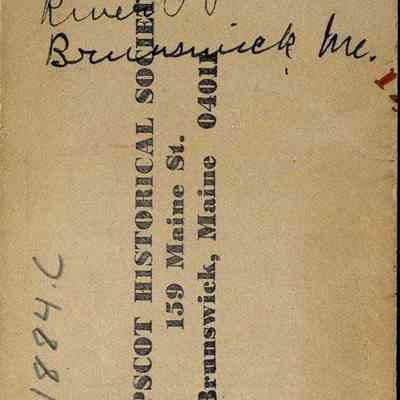 River
Brunswick Me.
PSCOT HISTORICAL SOCIE
159 Maine St.
Brunswick, Maine 0401
1884.C